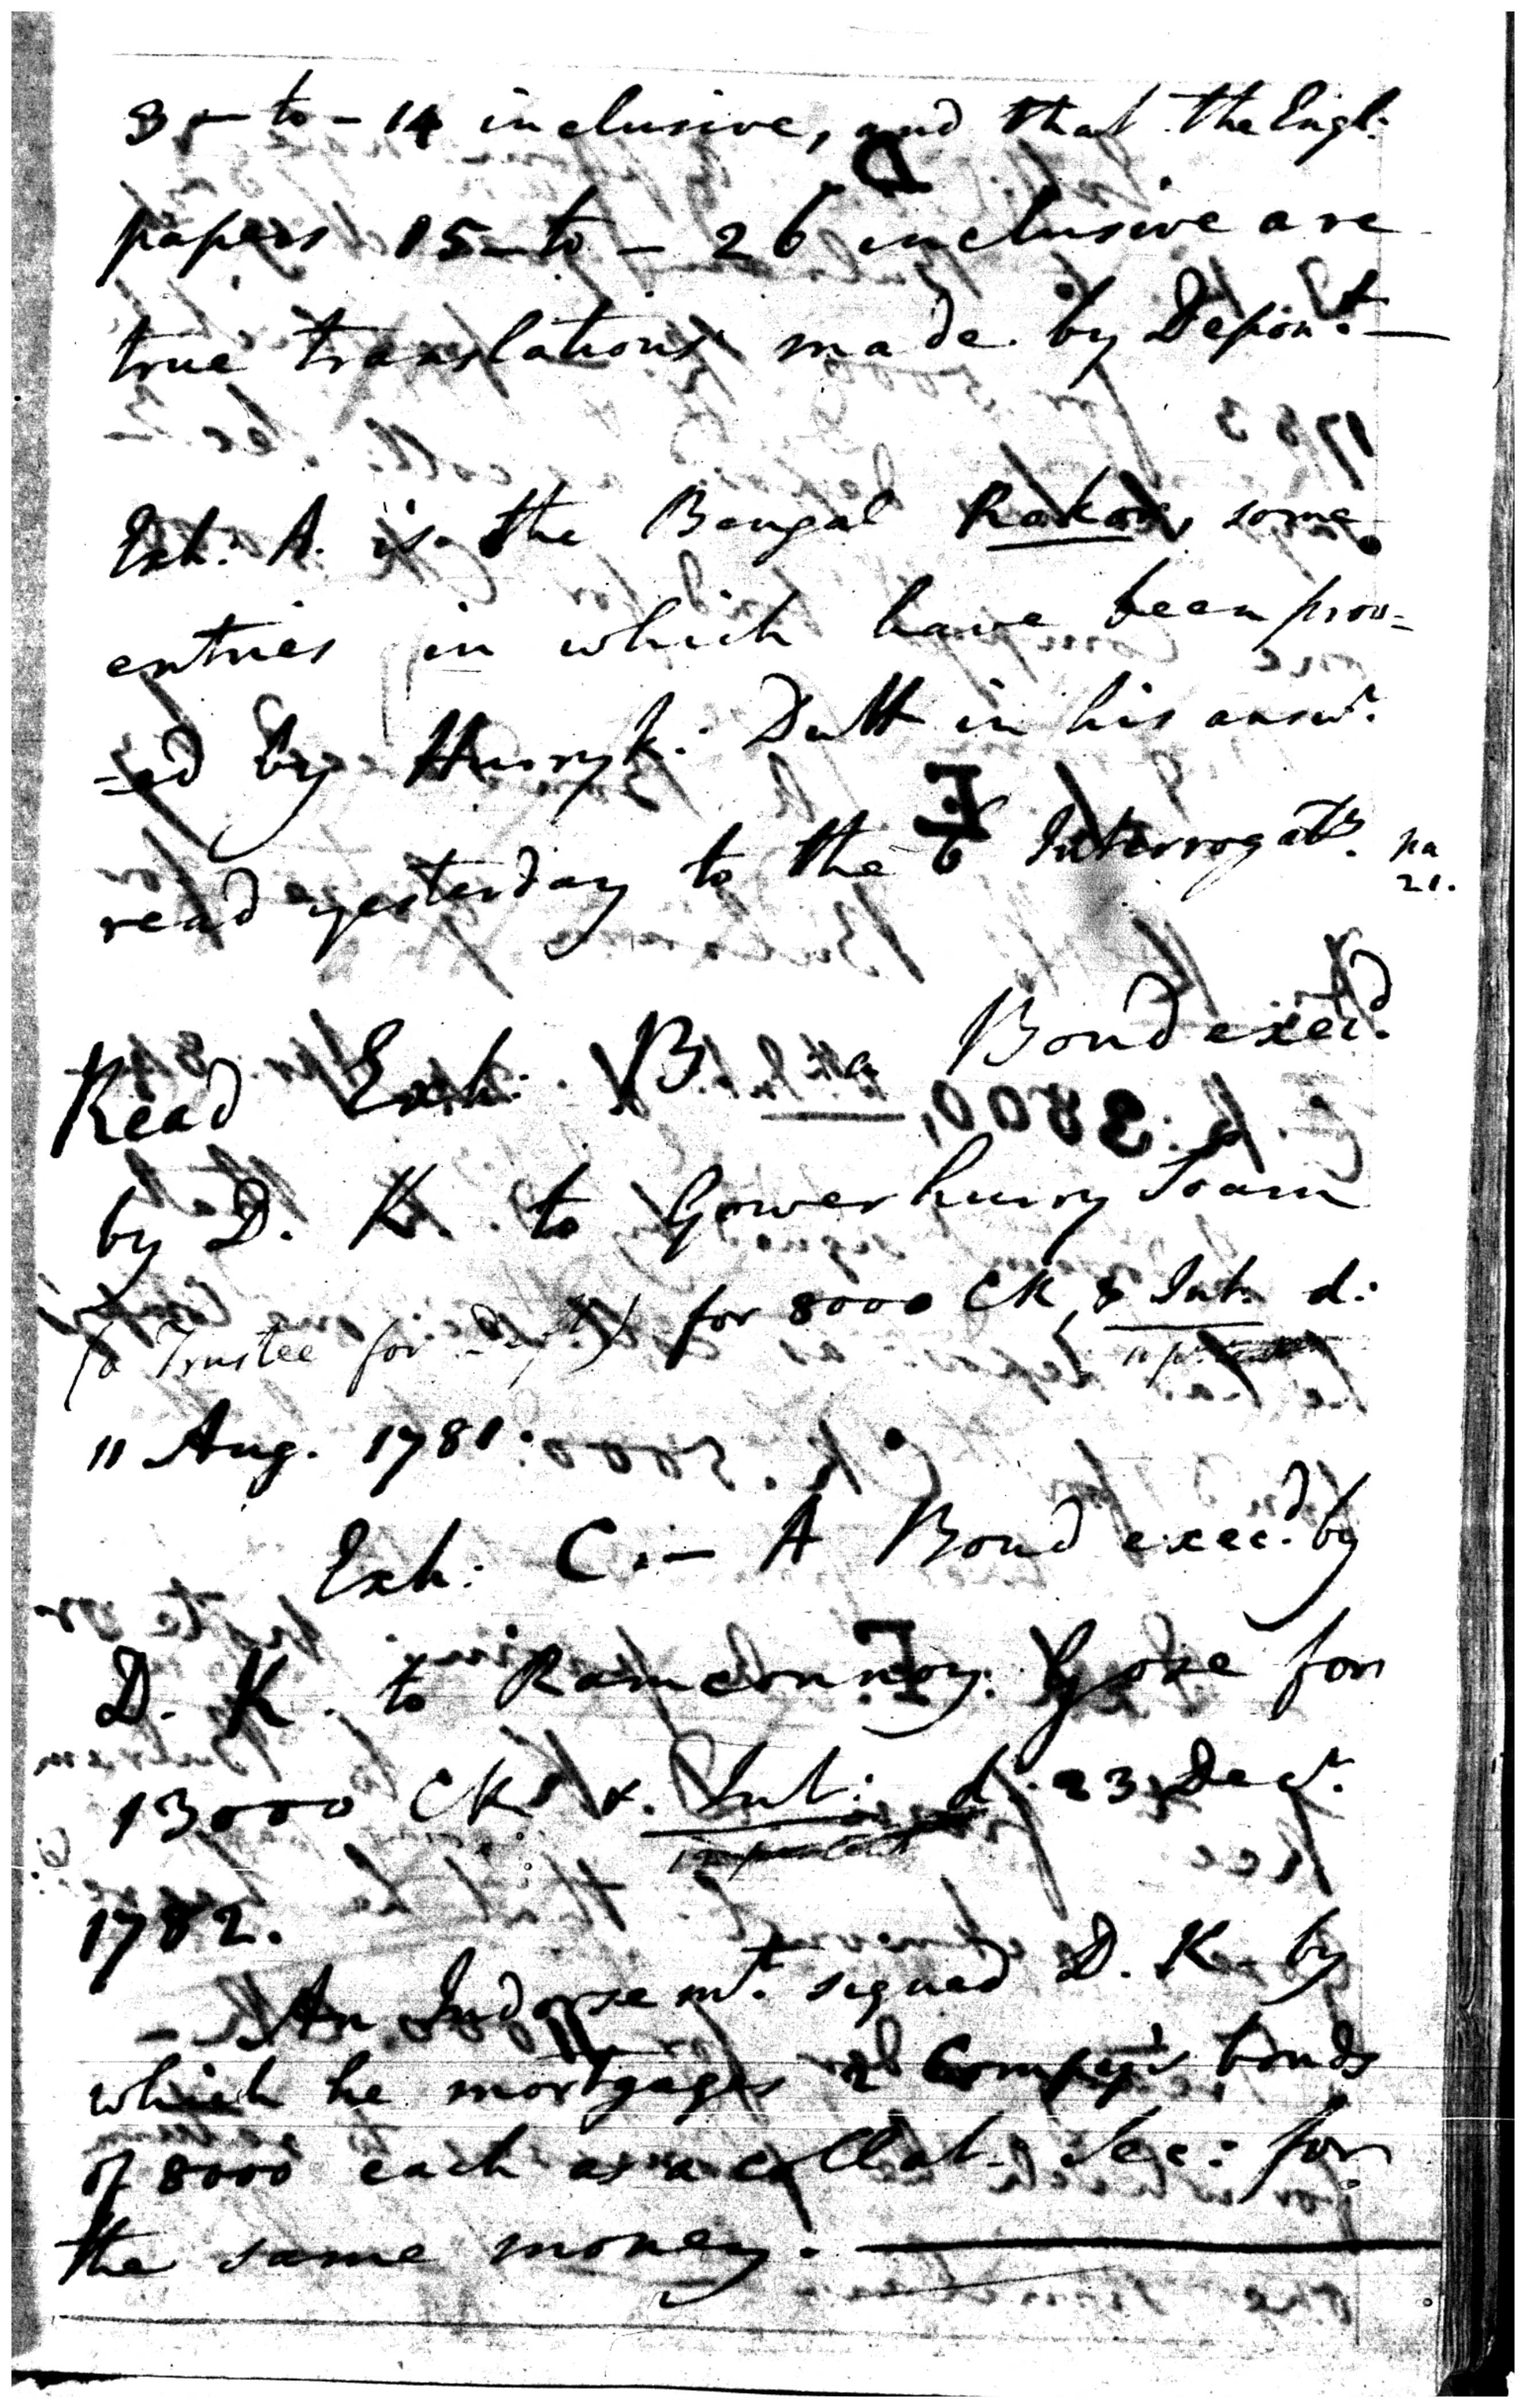 3 - to - 14 inclusive, and that the Engl:
papers 15 - to - 26 inclusive are
true translations made by Depon.t —
Exh. A. is the Bengal some
entries in which have been prov=
=ed by Hurry k. Dutt in his answ.r
read yesterday to the 6 Interrogat.s pa 21.
Read Exh: B. a Bond exec.d
by D. K. to Gowerhurry Soam
(a Trustee for ) for 8000 CK & Int. d:
11 Aug. 1781:
Exh: C :- A Bond exec.d by
D. K. to Ramconnoy Gose for
13000 CK & Int: d: 23 Dec.r
1782.
An Indorsem.t signed D. K. by
which he mortgages 2 Comp.y's bonds
of 8000 each as a collat. Sec: for
the same money.